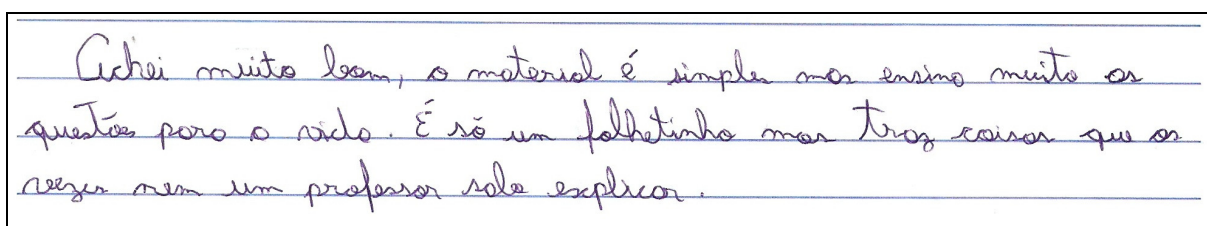 Achei muito bom, o material é simples mas ensina muito as
questões para a vida. É só um folhetinho mas traz coisas que as
vezes nem um professor sabe explicar.